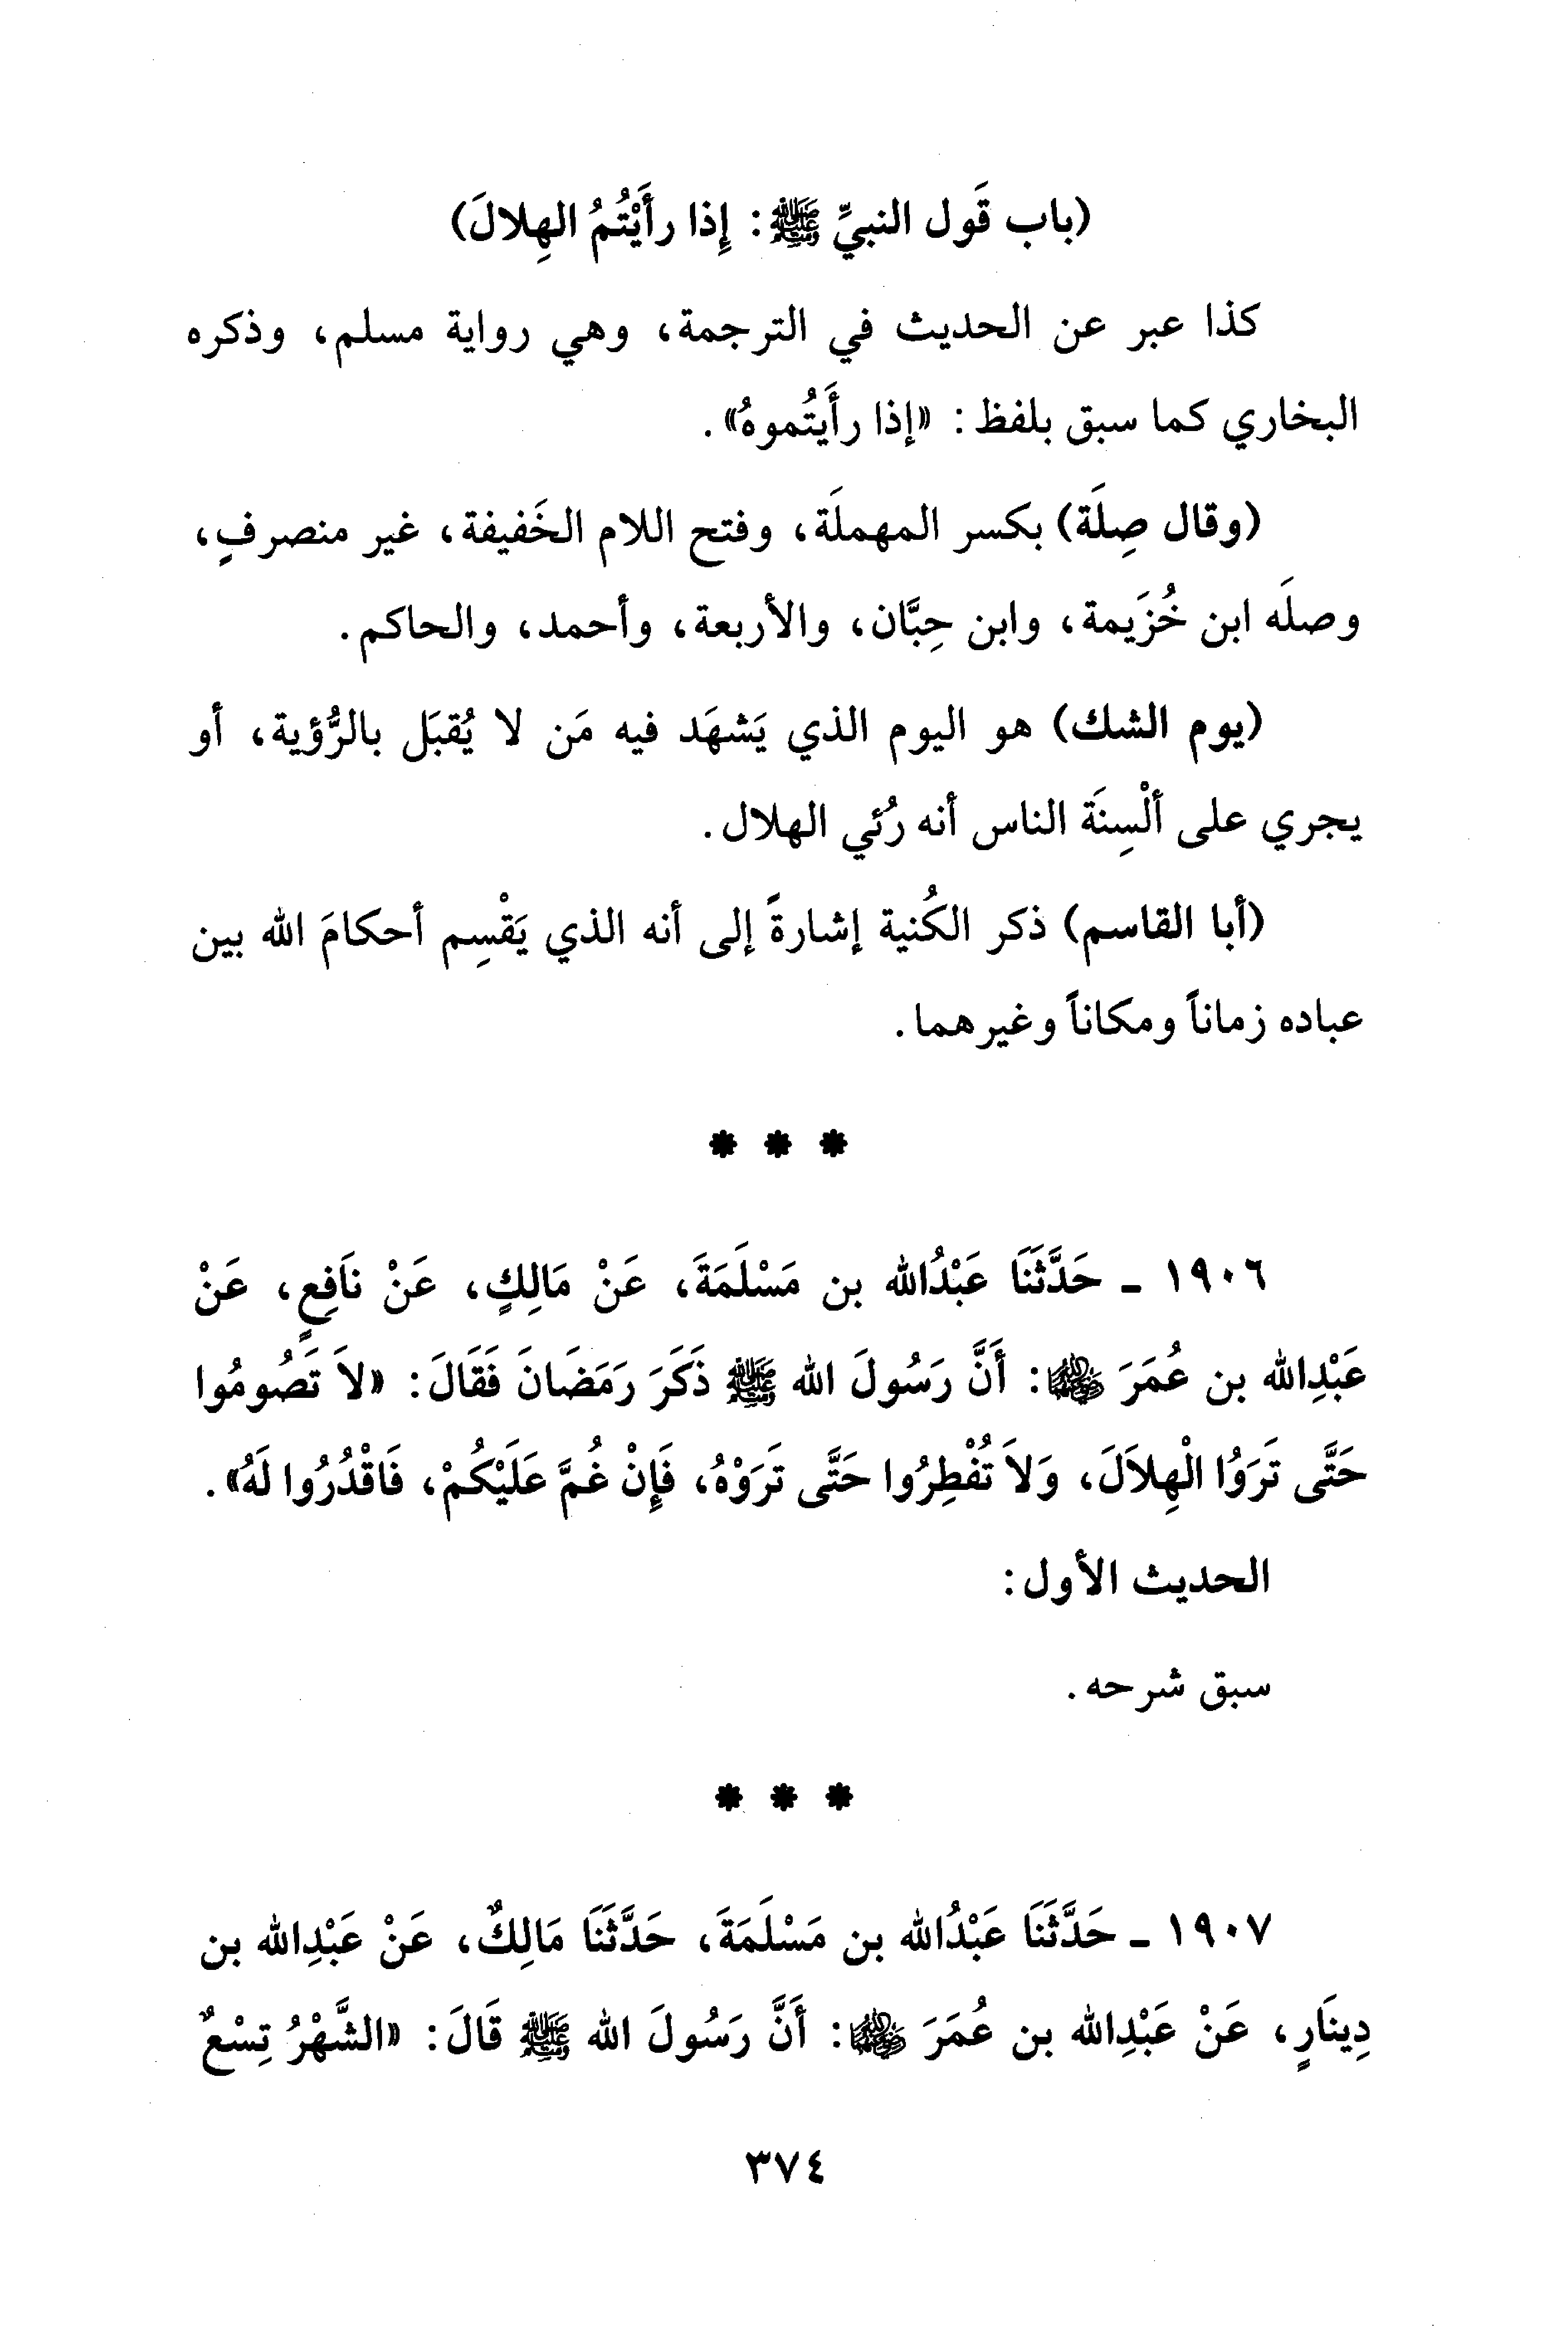 (باب قَول النبيِّ ﷺ: إِذا رأَيْتُمُ الهِلالَ)
كذا عبر عن الحديث في الترجمة، وهي رواية مسلم، وذكره
البخاري كما سبق بلفظ: «إذا رأَيتُموهُ».
(وقال صِلَة) بكسر المهملَة، وفتح اللام الخَفيفة، غير منصرفٍ،
وصلَه ابن خُزَيمة، وابن حِبَّان، والأربعة، وأحمد، والحاكم.
(يوم الشك) هو اليوم الذي يَشهَد فيه مَن لا يُقبَل بالرُّؤية، أو
يجري على ألْسِنَة الناس أنه رُئي الهلال.
(أبا القاسم) ذكر الكُنية إشارةً إلى أنه الذي يَقْسِم أحكامَ الله بين
عباده زماناً ومكاناً وغيرهما.
* * *
١٩٠٦ - حَدَّثَنَا عَبْدُالله بن مَسْلَمَةَ، عَنْ مَالِكٍ، عَنْ نَافِعٍ، عَنْ
عَبْدِالله بن عُمَرَ ﵄: أَنَّ رَسُولَ الله ﷺ ذَكَرَ رَمَضَانَ فَقَالَ: «لاَ تَصُومُوا
حَتَّى تَرَوُا الْهِلاَلَ، وَلاَ تُفْطِرُوا حَتَّى تَرَوْهُ، فَإِنْ غُمَّ عَلَيْكُمْ، فَاقْدُرُوا لَهُ».
الحديث الأول:
سبق شرحه.
* * *
١٩٠٧ - حَدَّثَنَا عَبْدُالله بن مَسْلَمَةَ، حَدَّثَنَا مَالِكٌ، عَنْ عَبْدِالله بن
دِينَارٍ، عَنْ عَبْدِالله بن عُمَرَ ﵄: أَنَّ رَسُولَ الله ﷺ قَالَ: «الشَّهْرُ تِسْعٌ
٣٧٤